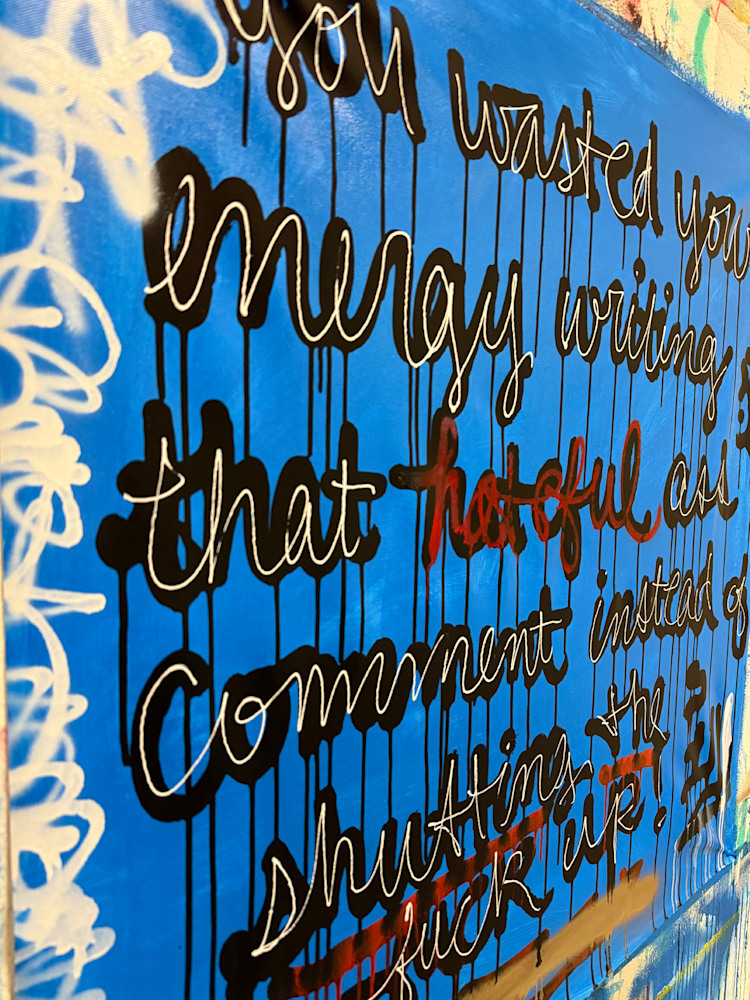 you wasted your
energy writing
that hateful ass
comment instead of
shutting the
fuck up!